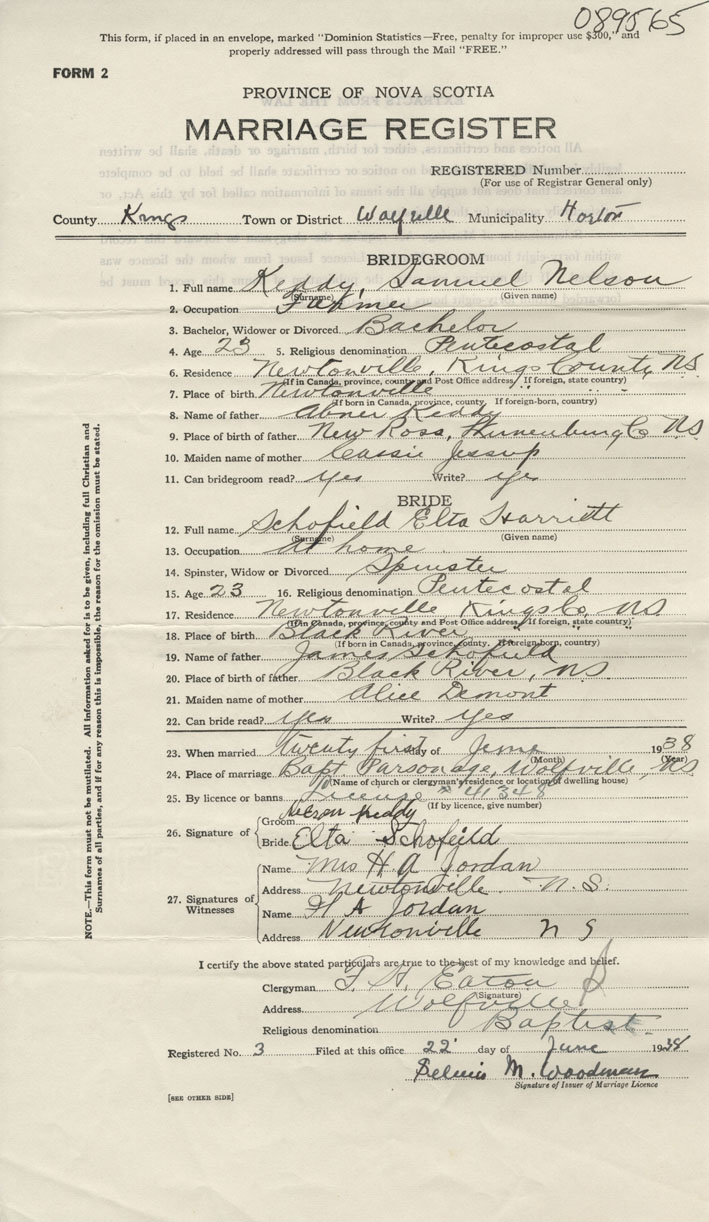 089565
This form, if placed in an envelope, marked "Dominion Statistics—Free, penalty for improper use $300," and
properly addressed will pass through the Mail "FREE."
FORM 2
PROVINCE OF NOVA SCOTIA
MARRIAGE REGISTER
REGISTERED Number
(For use of Registrar General only)
County Kings Town or District Wolfville Municipality Horton
BRIDEGROOM
1. Full name Keddy, Samuel Nelson
(Surname) (Given name)
2. Occupation Farmer
3. Bachelor, Widower or Divorced Bachelor
4. Age 23 5. Religious denomination Pentecostal
6. Residence Newtonville, Kings County, NS
(If in Canada, province, county and Post Office address. If foreign, state country)
7. Place of birth Newtonville " "
(If born in Canada, province, county. If foreign-born, country)
8. Name of father Abner Keddy
9. Place of birth of father New Ross, Lunenburg Co NS
10. Maiden name of mother Cassie Jessup
11. Can bridegroom read? yes Write? yes
BRIDE
12. Full name Schofield Elta Harriett
(Surname) (Given name)
13. Occupation At home
14. Spinster, Widow or Divorced Spinster
15. Age 23 16. Religious denomination Pentecostal
17. Residence Newtonville Kings Co, NS
(If in Canada, province, county and Post Office address. If foreign, state country)
18. Place of birth Black River " "
(If born in Canada, province, county. If foreign-born, country)
19. Name of father James Schofield
20. Place of birth of father Black River, NS
21. Maiden name of mother Alice Demont
22. Can bride read? Yes Write? Yes
23. When married twenty first day of June 1938
(Month) (Year)
24. Place of marriage Bapt. Parsonage, Wolfville, NS
(Name of church or clergyman's residence or location of dwelling house)
25. By licence or banns License # 41348
(If by licence, give number)
26. Signature of
Groom Nelson Keddy
Bride Elta Schofeild
27. Signatures of Witnesses
Name Mrs H A Jordan
Address Newtonville N.S.
Name H A Jordan
Address Newtonville N S
I certify the above stated particulars are true to the best of my knowledge and belief.
Clergyman F. H. Eaton
(Signature)
Address Wolfville
Religious denomination Baptist
Registered No. 3 Filed at this office 22 day of June 1938
M. Woodman
Signature of Issuer of Marriage Licence
[SEE OTHER SIDE]
NOTE.—This form must not be mutilated. All information asked for is to be given, including full Christian and
Surnames of all parties, and if for any reason this is impossible, the reason for the omission must be stated.